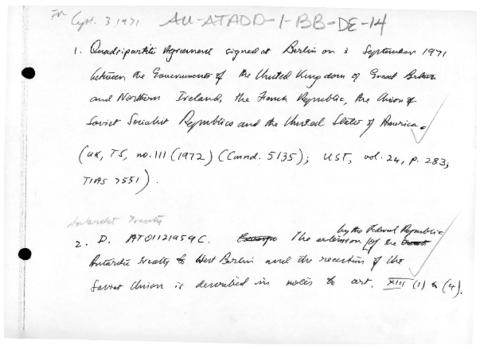 Sept. 3 1971 AU-ATADD-1-BB-DE-14
1. Quadripartite Agreement signed at Berlin on 3 September 1971
between the Governments of the United Kingdom of Great Britain
and Northern Ireland, the French Republic, the Union of
Soviet Socialist Republics and the United States of America.
(UK, TS, no. 111 (1972) (Cmnd. 5135); UST, vol. 24, p. 283;
TIAS 7551).
Antarctic Treaty
by the Federal Republic
2. D. AT01121959C. The extension of the
Antarctic Treaty to West Berlin and the reaction of the
Soviet Union is described in notes to art. XIII (1) & (4).